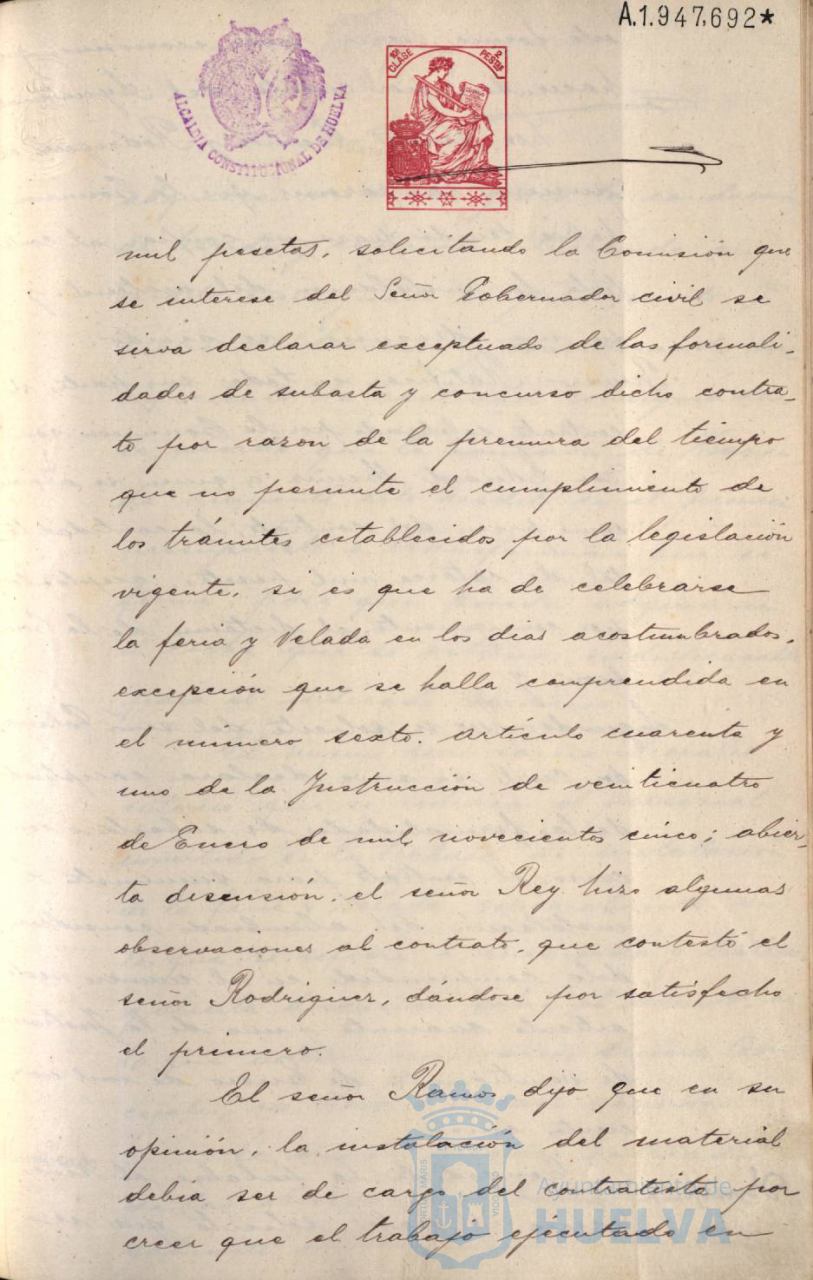 A.1.947,692*
ALCALDIA CONSTITUCIONAL DE HUELVA
10ª CLASE 2 PESETAS
mil pesetas, solicitando la Comisión que
se interese del Señor Gobernador civil se
sirva declarar exceptuado de las formali-
dades de subasta y concurso dicho contra-
to por razon de la premura del tiempo
que no permite el cumplimiento de
los trámites establecidos por la legislación
vigente, si es que ha de celebrarse
la feria y Velada en los dias acostumbrados,
excepción que se halla comprendida en
el número sexto, artículo cuarenta y
uno de la Instrucción de veinticuatro
de Enero de mil novecientos cinco; abier-
ta discusión, el señor Rey hizo algunas
observaciones al contrato, que contestó el
señor Rodriguez, dándose por satisfecho
el primero.
El señor Ramos dijo que en su
opinión, la instalación del material
debia ser de cargo del contratista por
creer que el trabajo ejecutado en
Ayuntamiento de
HUELVA